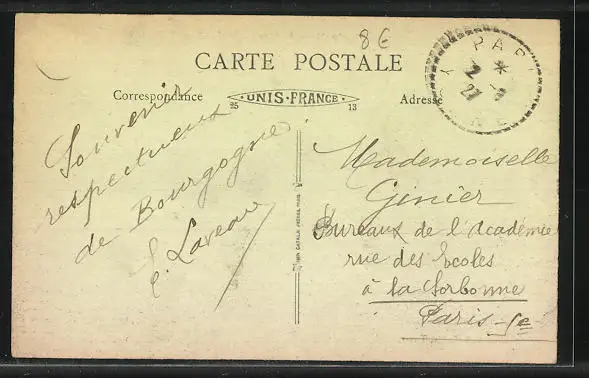 8€
CARTE POSTALE
Correspondance
UNIS-FRANCE
25 13
Adresse
PARI
Souvenir
respectueux
de Bourgogne
E. Laveau
Mademoiselle
Ginier
Bureaux de l'Académie
rue des Ecoles
à la Sorbonne
Paris-5e